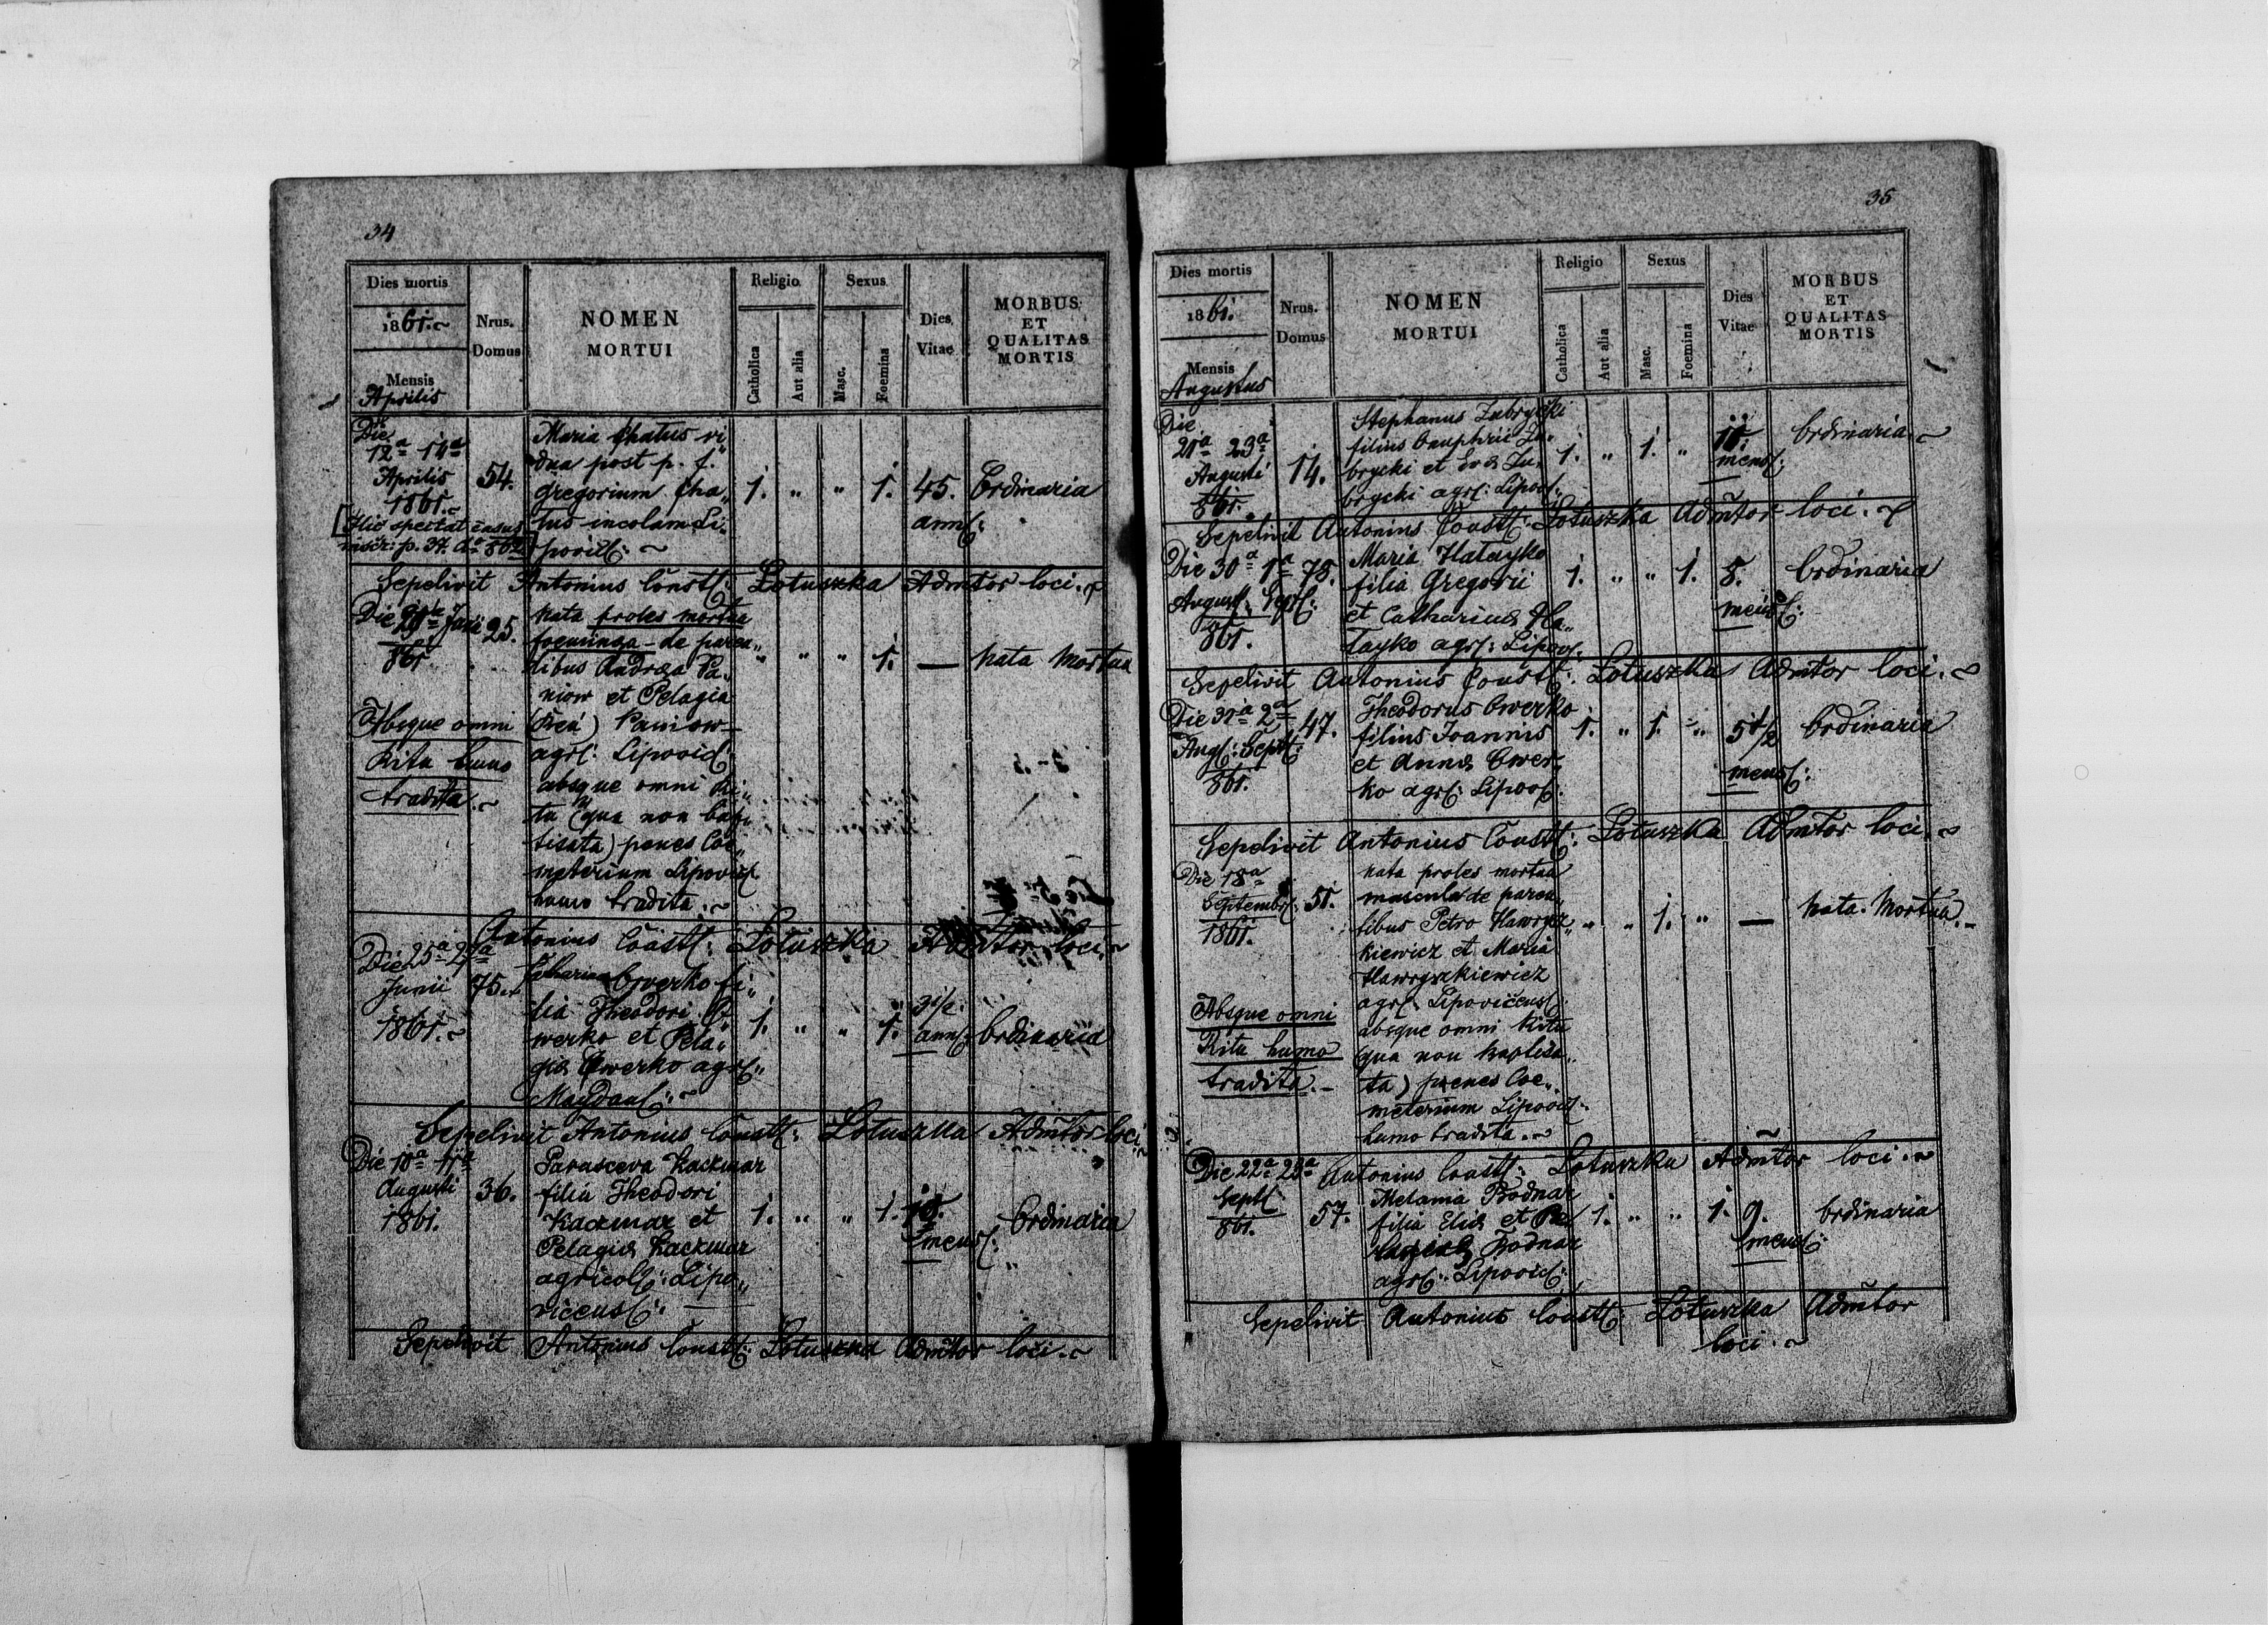 34
Dies mortis
1861.~
Mensis
Aprilis
Nrus.
Domus
NOMEN
MORTUI
Religio
Catholica
Aut alia
Sexus
Masc.
Foemina
Dies
Vitae
MORBUS
ET
QUALITAS
MORTIS
Die
12a 14a
Aprilis
1861.~
[Huc spectat casus
inscr: p. 37. do 862]
54.
Maria Chatus vi„
dua post p. f.
Gregorium Cha„
tus incolam Li„
povic: ~
1. „ „ 1. 45.
ann:
Ordinaria
Sepelivit Antonius Const: Łotuszka Admtor loci.~
Junii
861
25.
Nata proles mortua
foeminea - de paren„
tibus Andrea Pa„
niow et Pelagia
Paniow
agr: Lipovic:
absque omni Ri„
tu (qua non bap„
tisata) penes Coe„
meterium Lipovic:
humo tradita.~
„ „ „ 1. —
Nata Mortua
Absque omni
Ritu humo
tradita.~
Antonius Const: Łotuszka Admtor loci.~
Die 25a 27a
Junii
1861.~
75.
Catharina Cwerko fi„
lia Theodori C„
werko et Pela„
giæ Cwerko agr:
Maydan: ~
1. „ „ 1. 3 1/2.
ann:
Ordinaria
Sepelivit Antonius Const: Łotuszka Admtor loci.
Die 10a 11a
Augusti
1861.
36.
Parasceva Kaczmar
filia Theodori
Kaczmar et
Pelagiæ Kaczmar
agricol: Lipo„
vicens: —
1. „ „ 1. 10.
mens:
Ordinaria
Sepelivit Antonius Const: Łotuszka Admtor loci.~
35
Dies mortis
1861.
Mensis
Augustus
Nrus.
Domus
NOMEN
MORTUI
Religio
Catholica
Aut alia
Sexus
Masc.
Foemina
Dies
Vitae
MORBUS
ET
QUALITAS
MORTIS
Die
21a 23a
Augusti
861.
14.
Stephanus Zubrycki
filius Onuphrii Zu„
brycki et Evæ Zu„
brycki agr: Lipov:
1. „ 1. „ 11.
mens:
Ordinaria.~
Sepelivit Antonius Const: Łotuszka Admtor loci.~
Die 30a 1a
August: Sept:
861.
78.
Maria Hatayko
filia Gregorii
et Catharinæ Ha„
tayko agr: Lipov:
1. „ „ 1. 8.
mens:
Ordinaria
Sepelivit Antonius Const: Łotuszka Admtor loci.~
Die 31a 2a
Aug: Sept:
861.
47.
Theodorus Cwerko
filius Joannis
et Annæ Cwer„
ko agr: Lipov:
1. „ 1. „ 5 1/2
mens:
Ordinaria
Sepelivit Antonius Const: Łotuszka Admtor loci.~
Die 18a
Septembr:
1861.
51.
Nata proles mortua
mascula de paren„
tibus Petro Hawrysz„
kiewicz et Maria
Hawryszkiewicz
agr: Lipovicens:
absque omni Ritu
(qua non baptisa„
ta) penes Coe„
meterium Lipovic:
humo tradita.~
„ „ 1. „ —
Nata Mortua.-
Absque omni
Ritu humo
tradita.-
Antonius Const: Łotuszka Admtor loci.~
Die 22a 23a
Sept:
861.
57.
Melania Bodnar
filia Eliæ et Pe„
lagiæ Bodnar
agr: Lipovic:
1. „ „ 1. 9.
mens:
Ordinaria
Sepelivit Antonius Const: Łotuszka Admtor
loci.~